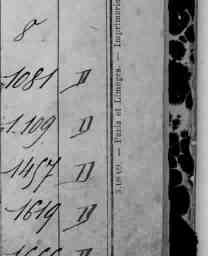 8
1081 D
1.109 D
1457 D
1619 D
5.1849. — Paris et Limoges. — Imprimerie